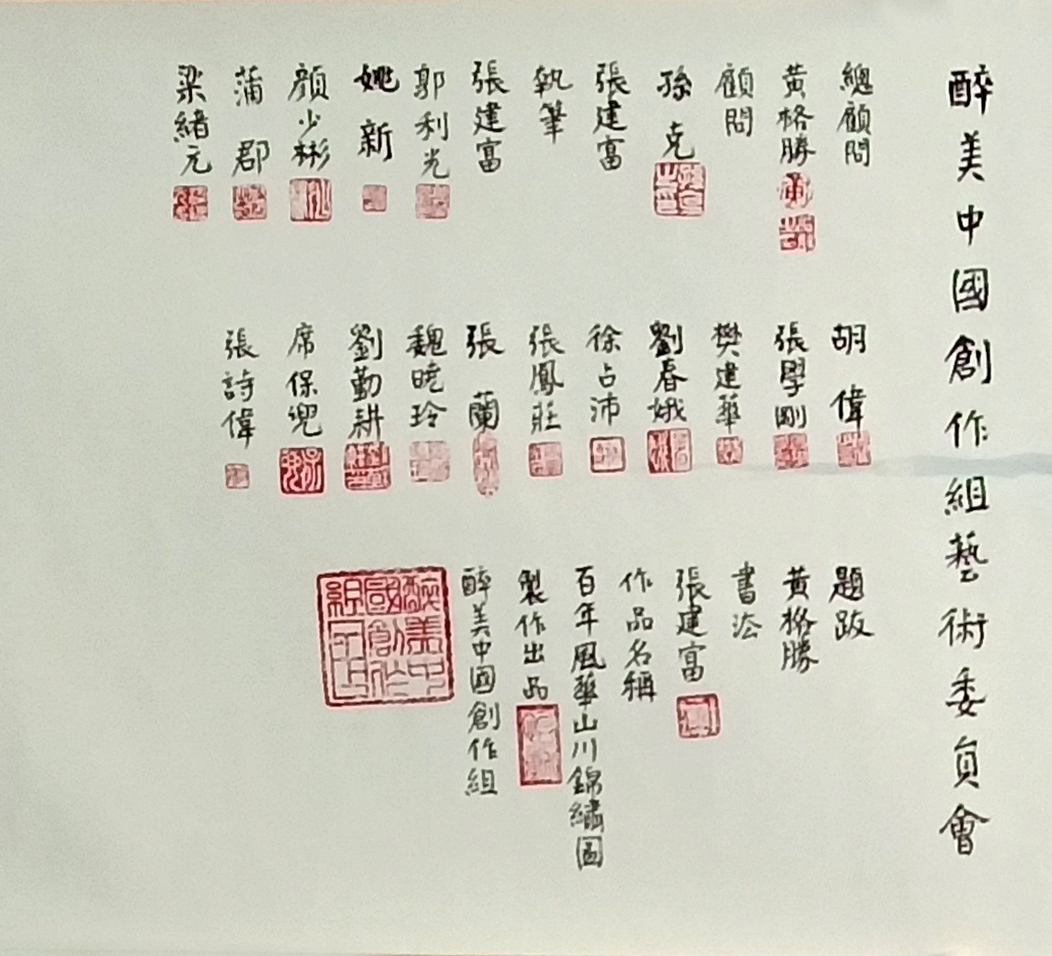 醉美中國創作組藝術委員會
總顧問
黃格勝
顧問
孫克
張建富
執筆
張建富
郭利光
姚新
顏少彬
蒲郡
梁緒元
胡偉
張學剛
樊建華
劉春娥
徐占沛
張鳳莊
張蘭
魏曉玲
劉勤耕
席保兜
張詩偉
題跋
黃格勝
書法
張建富
作品名稱
百年風華山川錦繡圖
製作出品
醉美中國創作組
醉美中國創作組